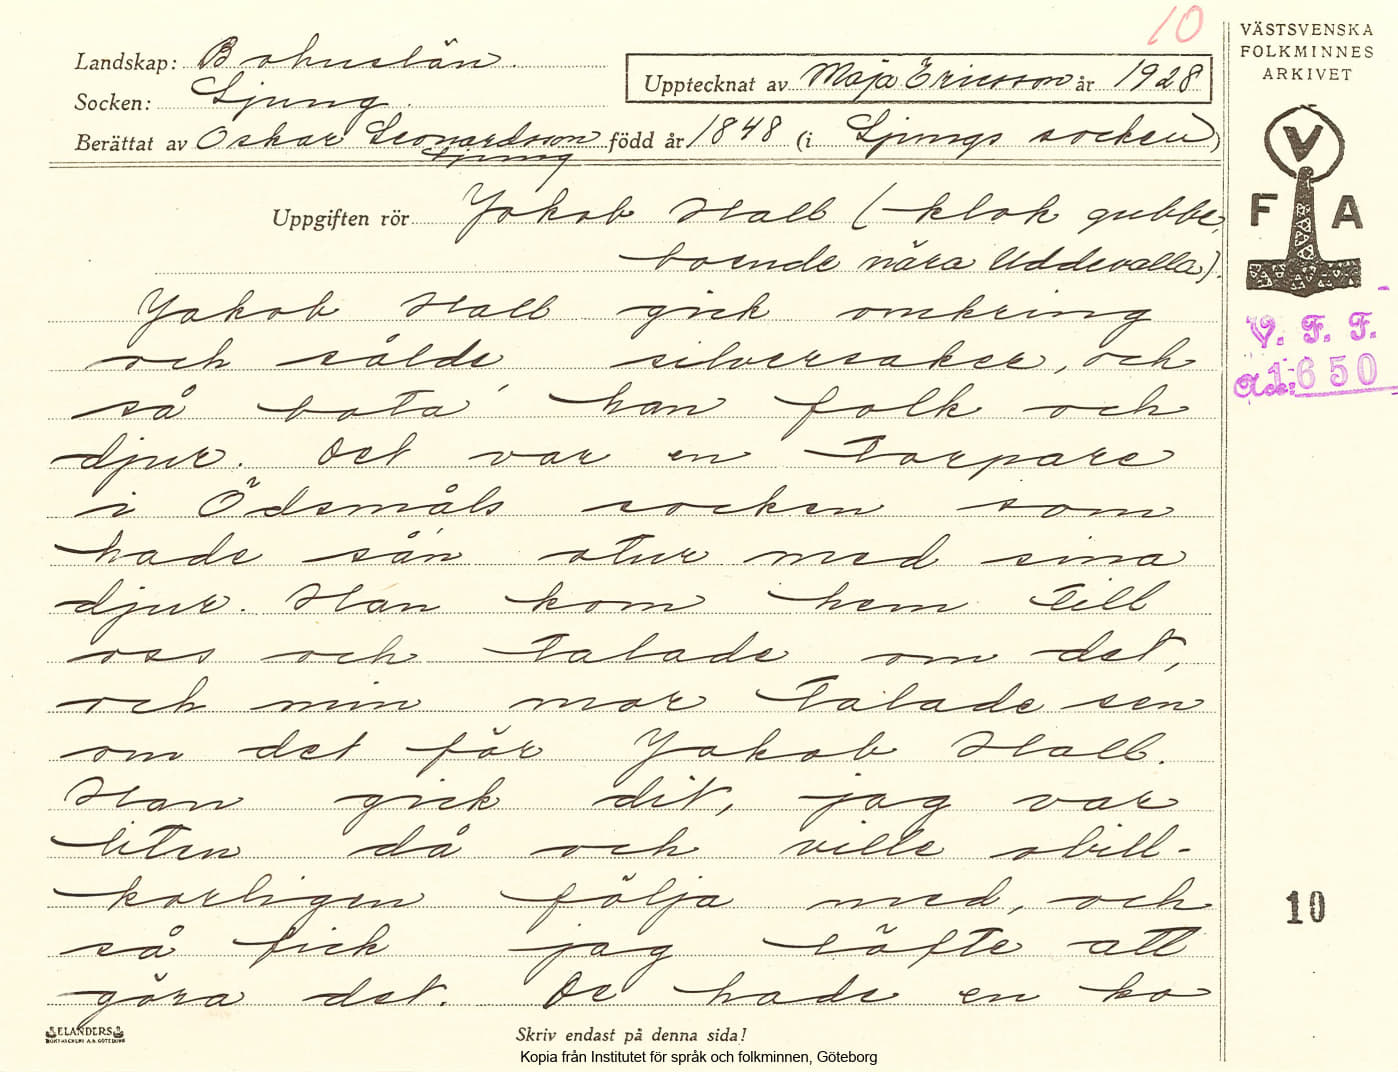 10
Landskap: Bohuslän.
Socken: Ljung.
Upptecknat av Maja Ericsson år 1928
Berättat av Oskar Leonardsson född år 1848 (i Ljungs socken)
Ljung
Uppgiften rör Jakob Hall (klok gubbe,
boende nära Uddevalla).
Jakob Hall gick omkring
och sålde silversaker, och
så bota' han folk och
djur. Det var en torpare
i Ödsmåls socken som
hade sån otur med sina
djur. Han kom hem till
oss och talade om det,
och min mor talade sen
om det för Jakob Hall.
Han gick dit, jag var
liten då och ville obill-
korligen följa med, och
så fick jag löfte att
göra det. De hade en ko
ELANDERS
BOKTRYCKERI A.B. GÖTEBORG
Skriv endast på denna sida!
Kopia från Institutet för språk och folkminnen, Göteborg
VÄSTSVENSKA
FOLKMINNES
ARKIVET
V
F A
V. F. F.
Acc: 1650
10